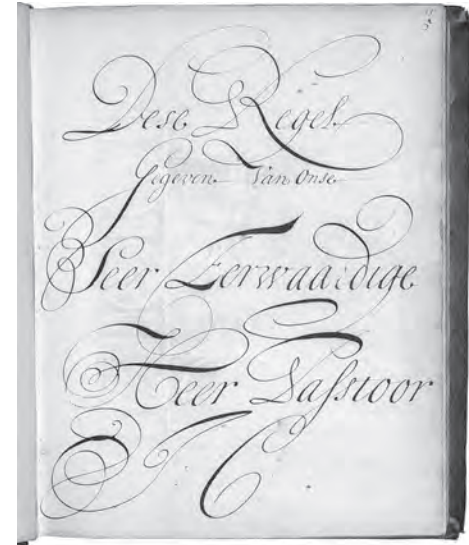 Dese Regel
Gegeven Van Onse
Seer Eerwaardige
Heer Passtoor